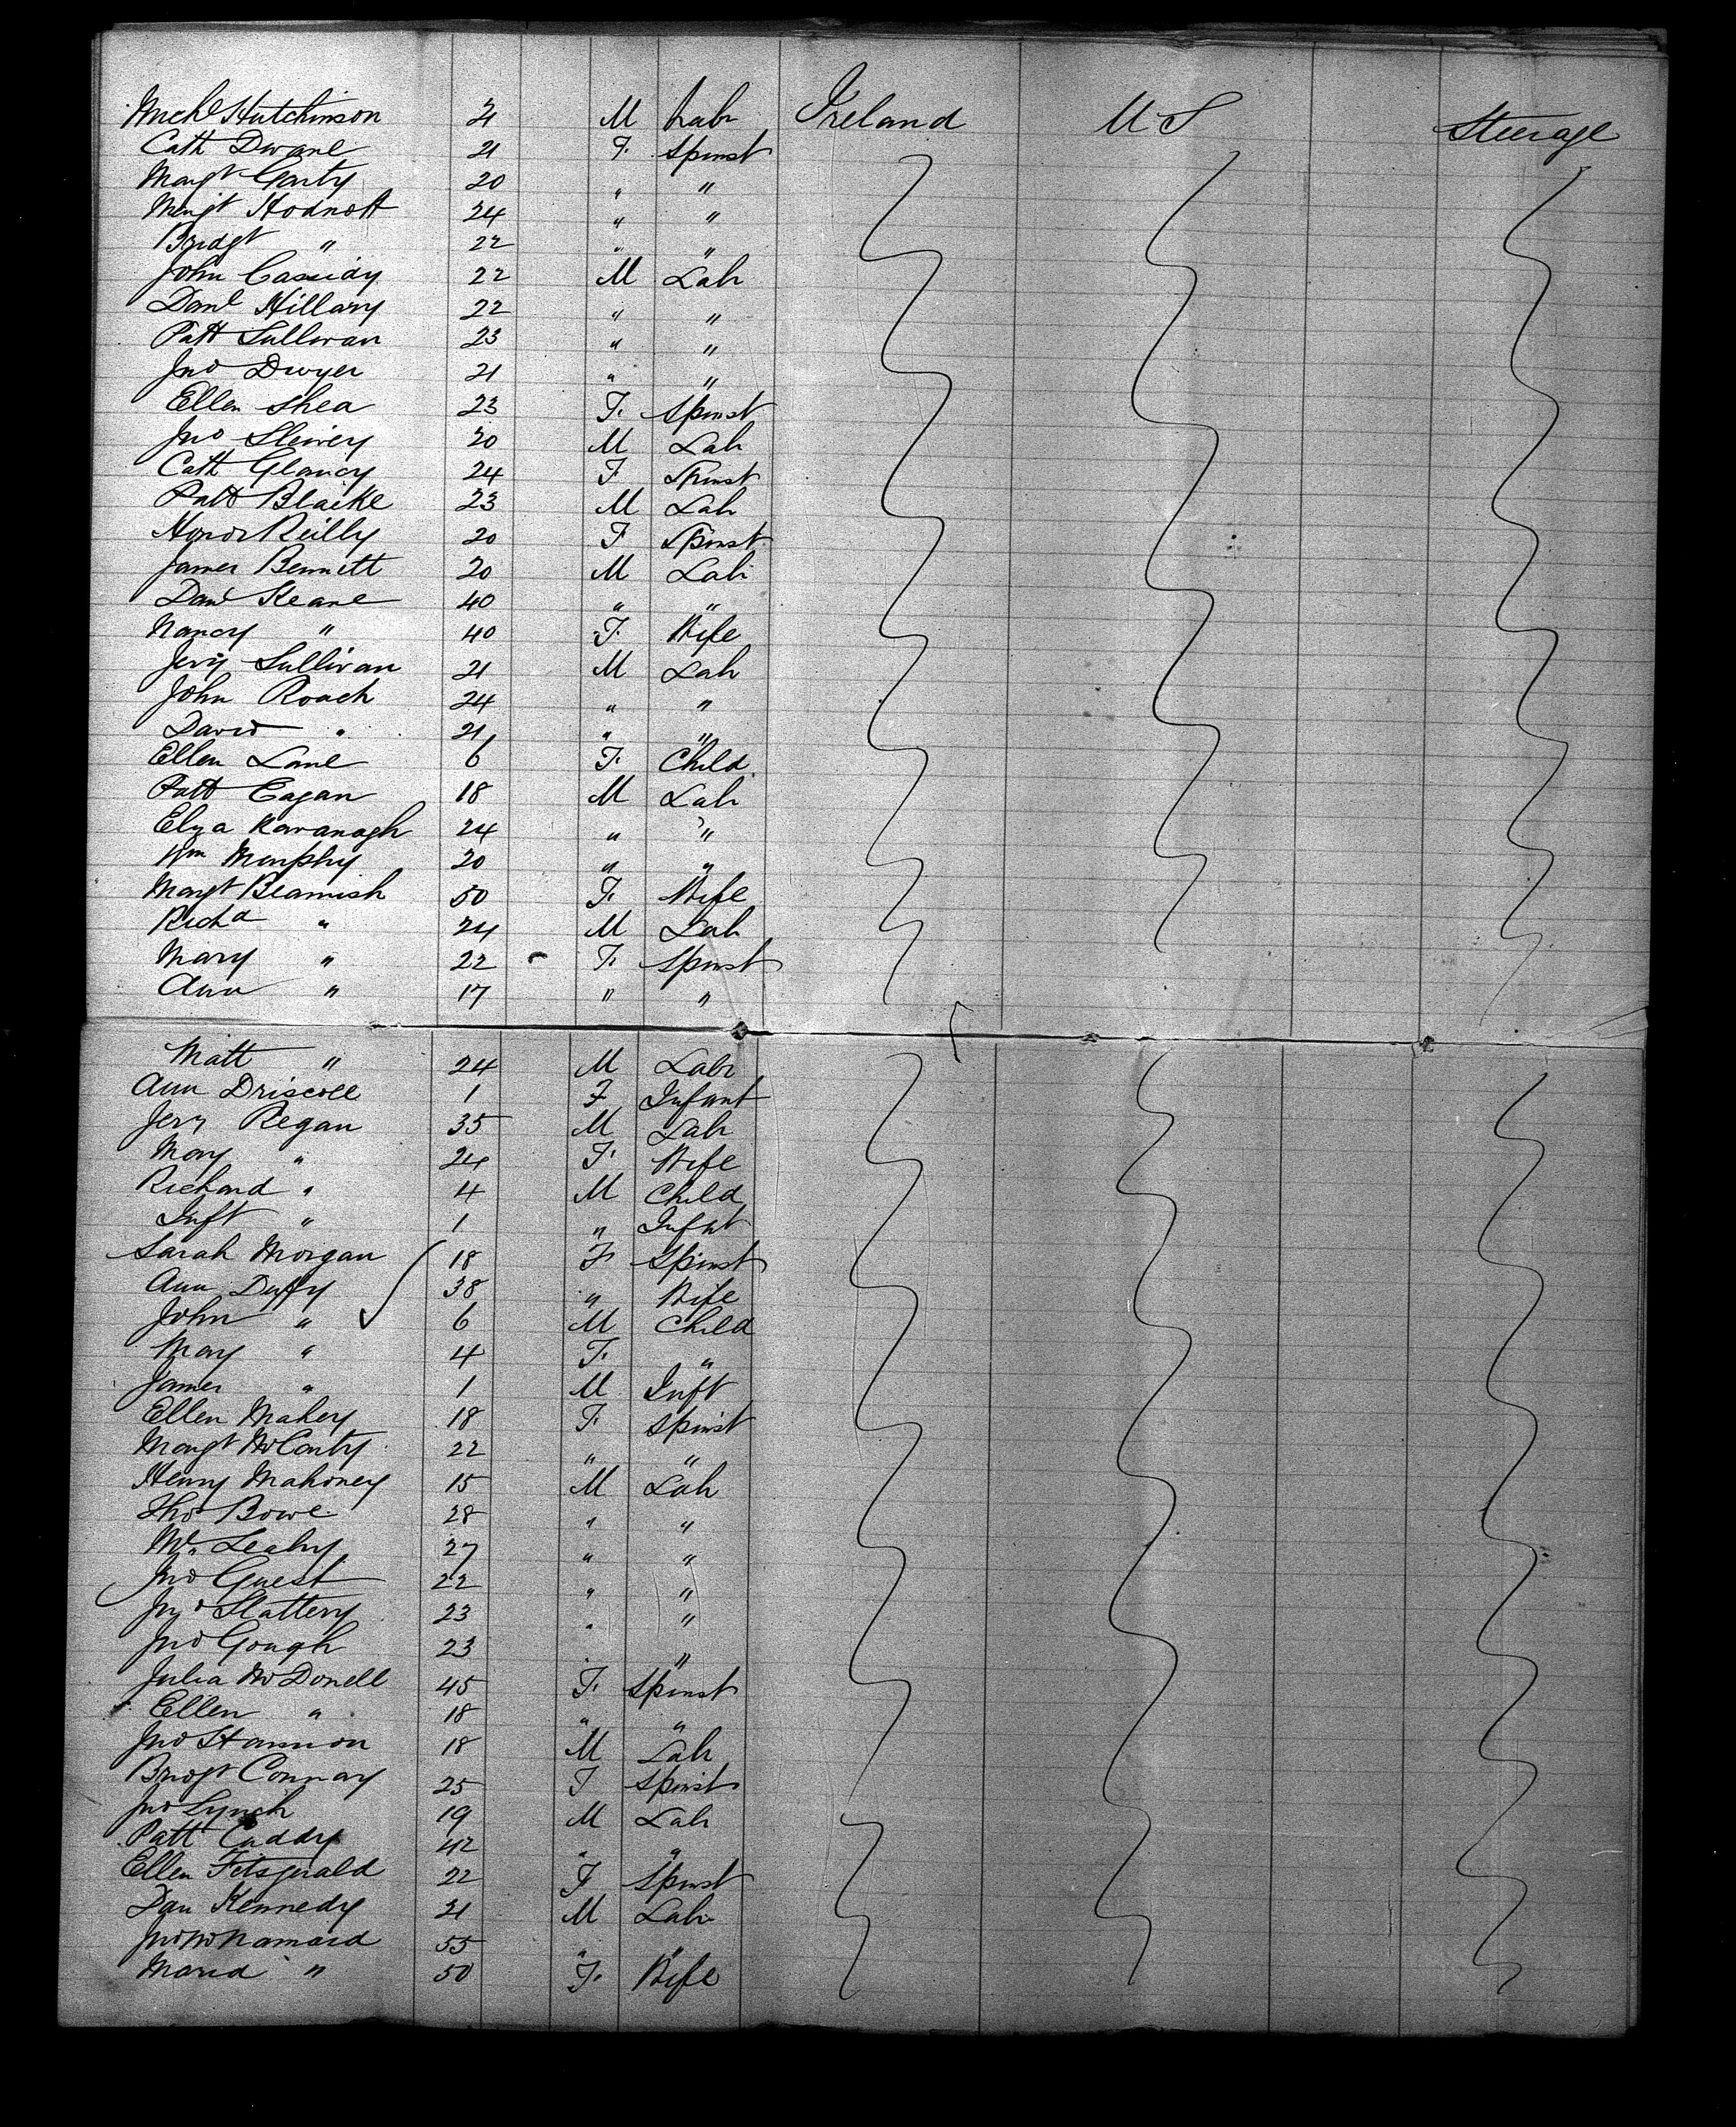 Michl Hutchinson 21 M Labr Ireland U S Steerage
Cath Dwane 21 F. Spinst
Margt Garty 20 " "
Margt Hodnott 24 " "
Bridgt " 22 " "
John Cassidy 22 M Labr
Danl Hillary 22 " "
Patt Sullivan 23 " "
Jno Dwyer 21 " "
Ellen Shea 23 F. Spinst
Jno 20 M Labr
Cath Glancy 24 F Spinst
Patt Blaike 23 M Labr
Honor Reilly 20 F Spinst
James Bennett 20 M Labr
Danl Keane 40 " "
Nancy " 40 F. Wife
Jery Sullivan 21 M Labr
John Roach 24 " "
David " 21 " "
Ellen Lane 6 F. Child
Patt Eagan 18 M Labr
Elza Kavanagh 24 " "
Wm Murphy 20 " "
Margt Beamish 50 F. Wife
Richd " 24 M Labr
Mary " 22 F. Spinst
Ann " 17 " "
Matt " 24 M Labr
Ann Driscoll 1 F Infant
Jery Regan 35 M Labr
Mary " 24 F Wife
Richard " 4 M Child
Inft " 1 " Infnt
Sarah Morgan 18 F Spinst
Ann Duffy 38 " Wife
John " 6 M Child
Mary " 4 F. "
James " 1 M Inft
Ellen Mahery 18 F. Spinst
Margt McCarty 22 " "
Henry Mahoney 15 M Labr
Tho Bowe 28 " "
Leahy 27 " "
Jno Guest 22 " "
Jno Slattery 23 " "
Jno Gough 23 " "
Julia McDonell 45 F. Spinst
Ellen " 18 " "
Jno Hannon 18 M Labr
Bridgt Connay 25 F Spinst
Jno Lynch 19 M Labr
Patt Cuddy 42 " "
Ellen Fitsgerald 22 F Spinst
Dan Kennedy 21 M Labr
Jno McNamara 55 " "
Maria " 50 F. Wife